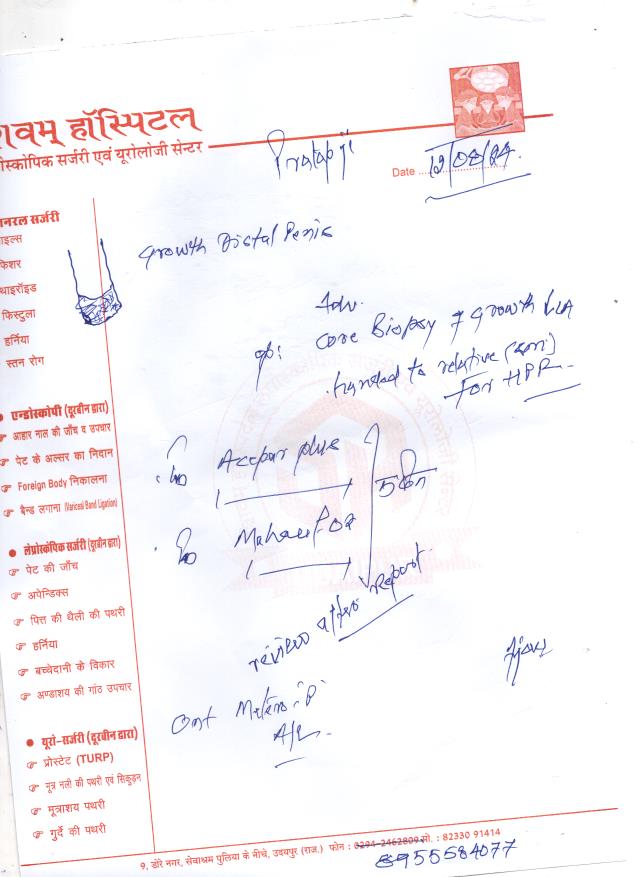 शिवम् हॉस्पिटल
स्कोपिक सर्जरी एवं यूरोलोजी सेन्टर
Pratapji
Date 12/08/24
नरल सर्जरी
इल्स
फिशर
थाइरॉइड
फिस्टुला
हर्निया
स्तन रोग
Growth Distal Penis
Adv.
Core Biopsy of Growth U/LA
handed to relative (son)
For HPR
एन्डोस्कोपी (दूरबीन द्वारा)
आहार नाल की जाँच व उपचार
पेट के अल्सर का निदान
Foreign Body निकालना
बैन्ड लगाना (Variceal Band Ligation)
plus
1 1
5 दिन
1 1
review after report
लेप्रोस्कोपिक सर्जरी (दूरबीन द्वारा)
पेट की जाँच
अपेन्डिक्स
पित्त की थैली की पथरी
हर्निया
बच्चेदानी के विकार
अण्डाशय की गांठ उपचार
यूरो-सर्जरी (दूरबीन द्वारा)
प्रोस्टेट (TURP)
मूत्र नली की पथरी एवं सिकुड़न
मूत्राशय पथरी
गुर्दे की पथरी
9, डोरे नगर, सेवाश्रम पुलिया के नीचे, उदयपुर (राज.) फोन : 0294-2462809 मो. : 82330 91414
8955584077